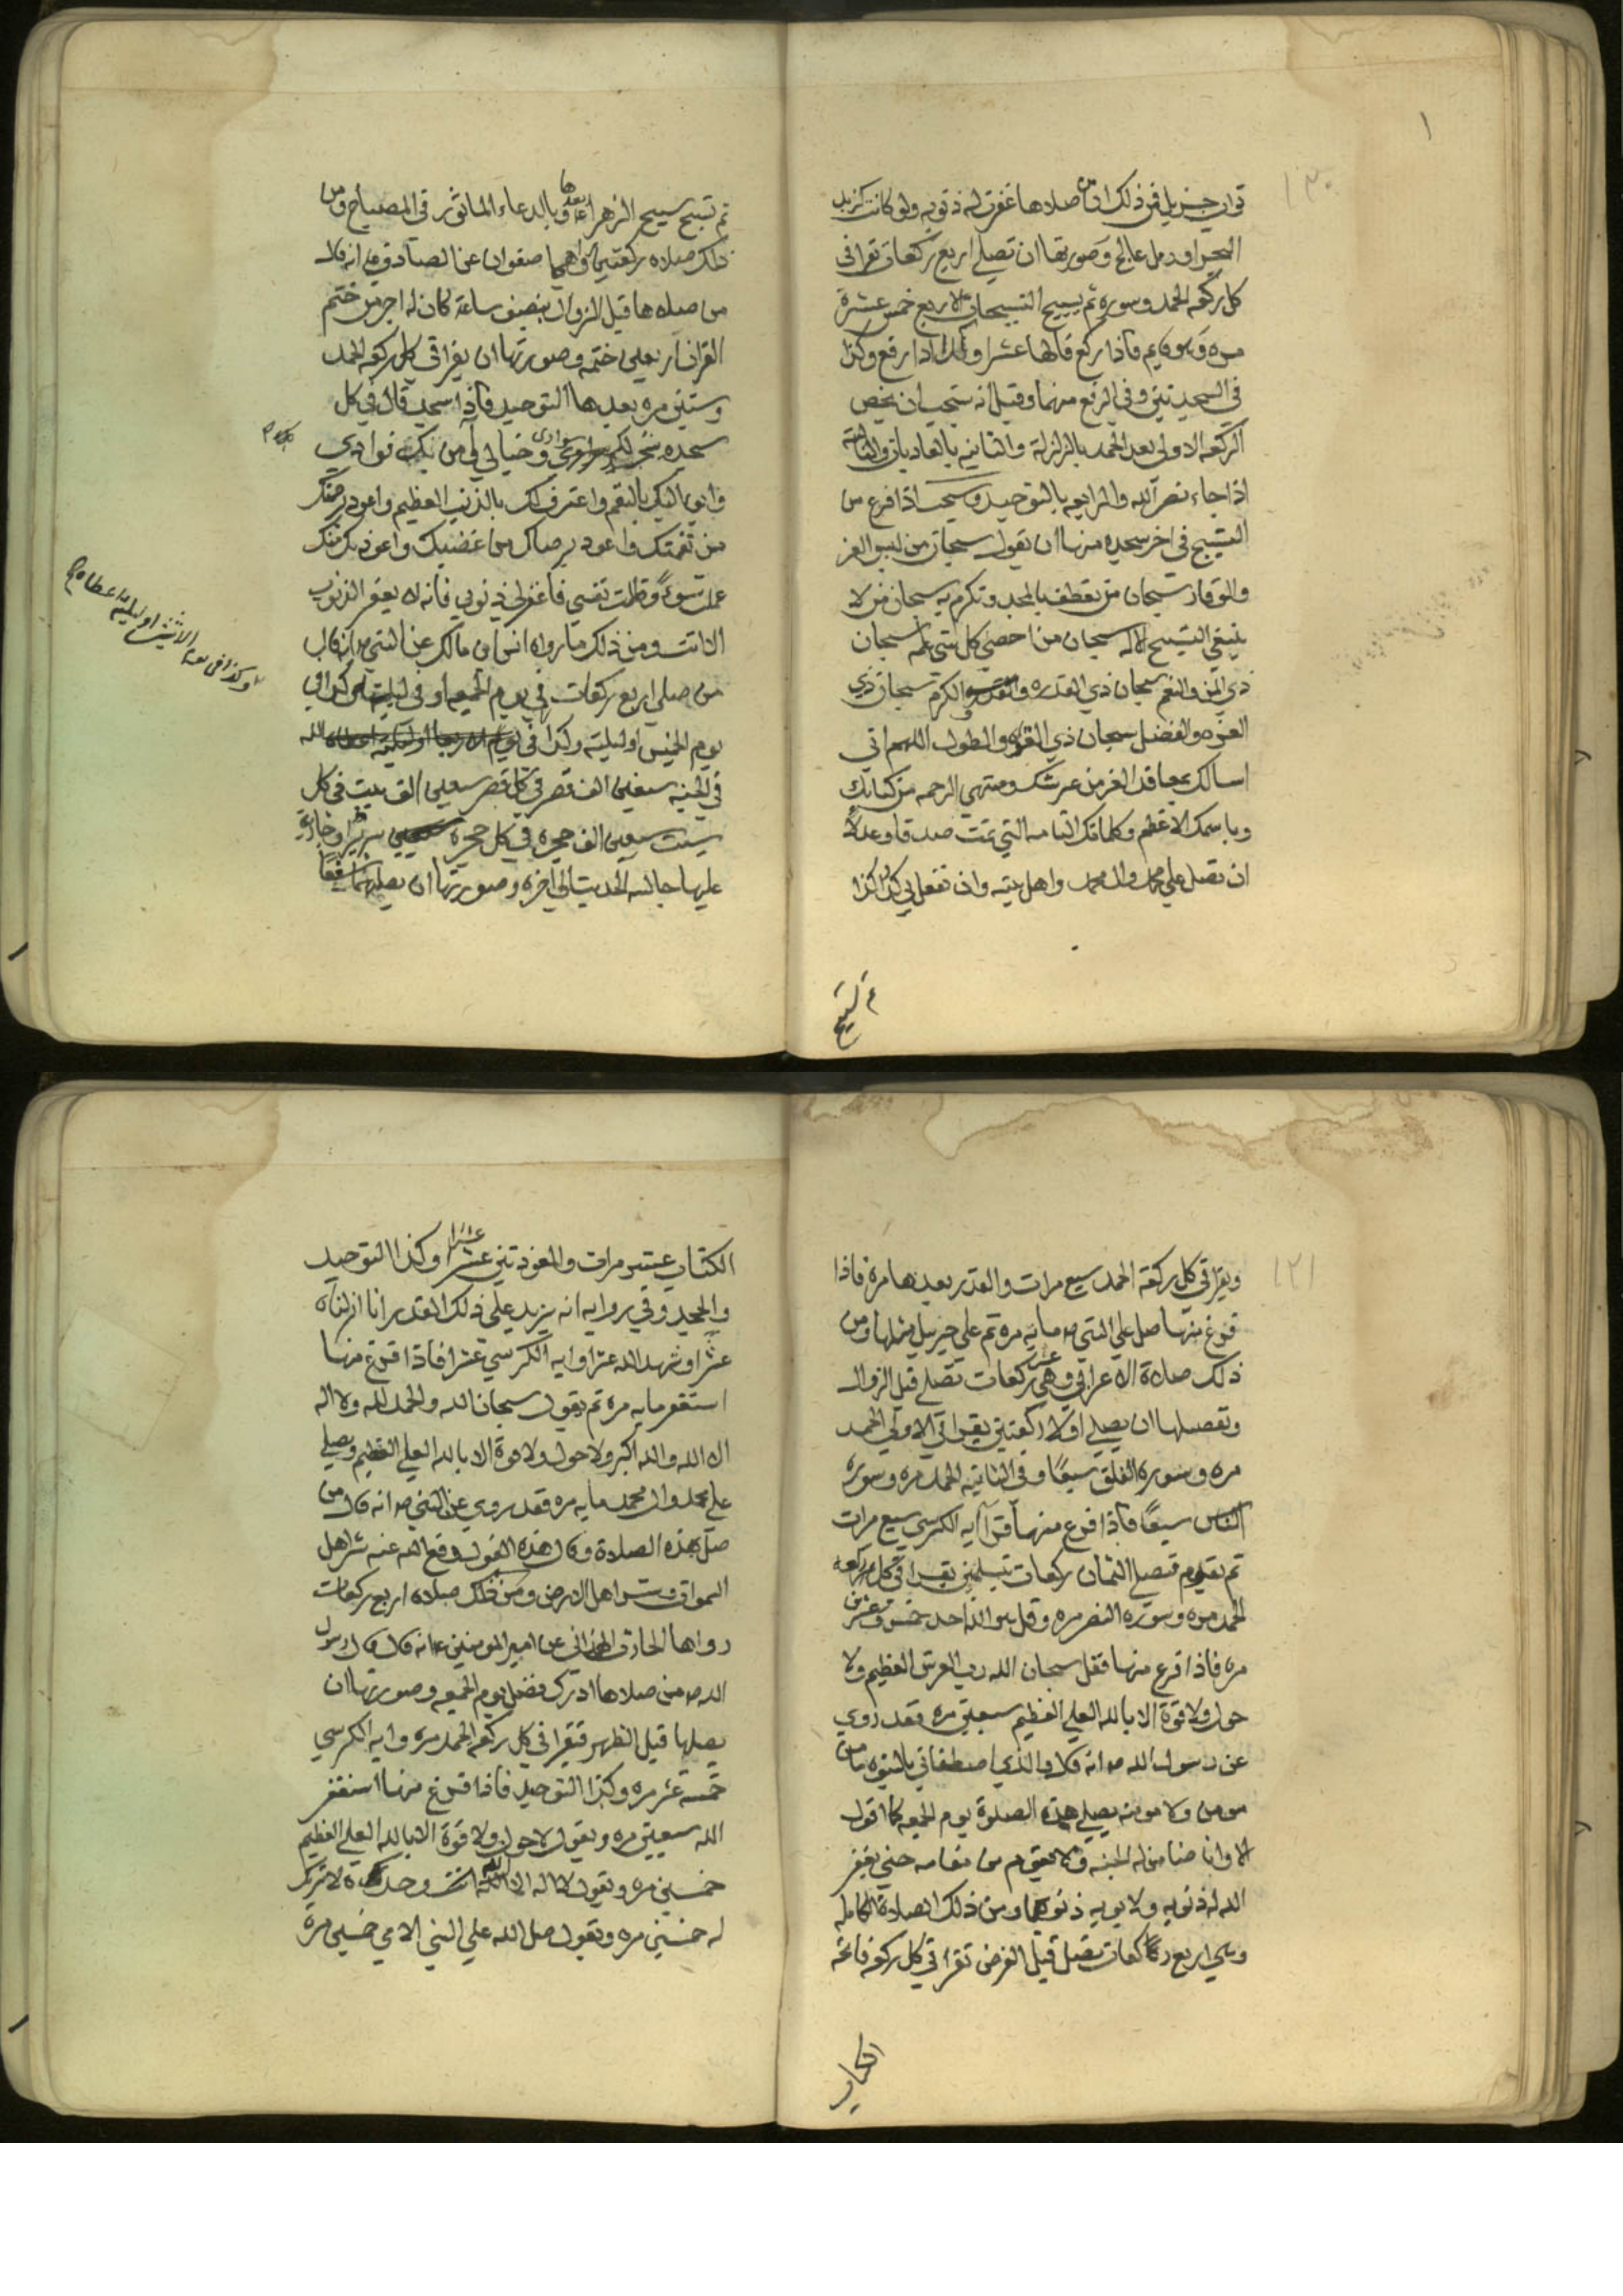 ١
١٣٠
ثواب جزيل فمن ذلك ان من صلاها غفرت له ذنوبه ولو كانت كزبد
البحر او رمل عالج وصورتها ان تصلي اربع ركعات تقرا في
كل ركعه الحمد وسوره ثم يسبح التسبيحات الاربع خمس عشرة
مره وهو قايم فاذا ركع قالها عشرا وكذا اذا رفع وكذا
في السجدتين وفي الرفع منهما وقيل انه يستحب ان يخص
الركعه الاولى بعد الحمد بالزلزلة والثانيه بالعاديات والثالثة
اذا جاء نصر الله والرابعه بالتوحيد ويستحب اذا فرغ من
التسبيح في اخر سجده منها ان يقول سبحان من لبس العز
والوقار سبحان من تعطف بالمجد وتكرم به سبحان من لا
ينبغي التسبيح الا له سبحان من احصى كل شي علمه سبحان
ذي المن والنعم سبحان ذي القدره والكرم سبحان ذي
العزه والفضل سبحان ذي القوه والطول اللهم اني
اسالك بمعاقد العز من عرشك ومنتهي الرحمه من كتابك
وباسمك الاعظم وكلماتك التامه التي تمت صدقا وعدلا
ان تصلي علي محمد وال محمد واهل بيته وان تفعل بي كذا وكذا
ثم تسبح
ثم تسبح تسبيح الزهراء ع وتدعو بعدها بالدعاء الماثور في المصباح ومن
ذلك صلاه ركعتين رواهما صفوان عن الصادق ع انه قال
من صلاها قبل الزوال بنصف ساعة كان له اجر من ختم
القران اربعين ختمه وصورتها ان يقرا في كل ركعه الحمد
وستين مره بعدها التوحيد فاذا سجد قال في كل
سجده سجد لك سوادي وخيالي وآمن بك فوادي
وابوء اليك بالنعم واعترف لك بالذنب العظيم واعوذ برحمتك
من نقمتك واعوذ برضاك من غضبك واعوذ بك منك
عملت سوءً وظلمت نفسي فاغفر لي ذنوبي فانه لا يغفر الذنوب
الا انت ومن ذلك ما رواه انس بن مالك عن النبي ص انه قال
من صلي اربع ركعات في يوم الجمعه او في ليلته وكذا في
يوم الخميس او ليلته وكذا في يوم الاربعا او ليلته اعطاه الله
في الجنه سبعين الف قصر في كل قصر سبعين الف بيت في كل
بيت سبعين الف حجره في كل حجرة سريرا وجارية
عليها جالسه الحديث الي اخره وصورتها ان يصليهما شفعًا
وكذا في يوم الاثنين او ليلته اعطاه
١٣١
ويقرا في كل ركعة الحمد سبع مرات والقدر بعدها مرة فاذا
فرغ منها صل علي النبي ص مايه مره ثم علي جبريل مثلها ومن
ذلك صلاة الاعرابي وهي عشر ركعات تصلي قبل الزوال
وتفصيلها ان يصلي اولا ركعتين يقرا في الاولي الحمد
مره وسوره الفلق سبعًا وفي الثانيه الحمد مره وسوره
الناس سبعًا فاذا فرغ منها قرا آيه الكرسي سبع مرات
ثم يقوم فيصلي الثمان ركعات بتسليمتين يقرا في كل ركعه
الحمد مره وسوره النصر مره وقل هو الله احد خمس وعشرين
مره فاذا فرغ منها فقل سبحان الله رب العرش العظيم ولا
حول ولا قوة الا بالله العلي العظيم سبعين مره فقد روي
عن رسول الله ص انه قال والذي اصطفاني بالنبوه ما من
مومن ولا مومنه يصلي هذه الصلوة يوم الجمعه كما اقول
الا وانا ضامن له الجنه ولا يقوم من مقامه حتي يغفر
الله له ذنوبه ولابويه ذنوبهما ومن ذلك الصلاة الكامله
وهي اربع ركعات تصلي قبل الفرض تقرا في كل ركعه فاتحة
الكتاب
الكتاب عشر مرات والمعوذتين عشرا عشرا وكذا التوحيد
والجحد وفي روايه انه يزيد علي ذلك القدر انا انزلناه
عشرا وشهد الله عشرا وايه الكرسي عشرا فاذا فرغ منها
استغفر مايه مره ثم يقول سبحان الله والحمد لله ولا اله
الا الله والله اكبر ولا حول ولا قوة الا بالله العلي العظيم ويصلي
علي محمد وال محمد مايه مره فقد روي عن النبي ص انه قال من
صلي هذه الصلاة وقال هذه القول دفع الله عنه شر اهل
السموات وشر اهل الارض ومن ذلك صلاه اربع ركعات
رواها الحارث الهمداني عن امير المومنين ع انه قال قال رسول
الله ص من صلاها ادرك فضل يوم الجمعه وصورتها ان
يصلها قبل الظهر فتقرا في كل ركعه الحمد مره وايه الكرسي
خمسة عشر مره وكذا التوحيد فاذا فرغ منها استغفر
الله سبعين مره ويقول لا حول ولا قوة الا بالله العلي العظيم
خمسين مره ويقول لا اله الا الله وحده لا شريك
له خمسين مره ويقول صلي الله علي النبي الامي خمسين مرة